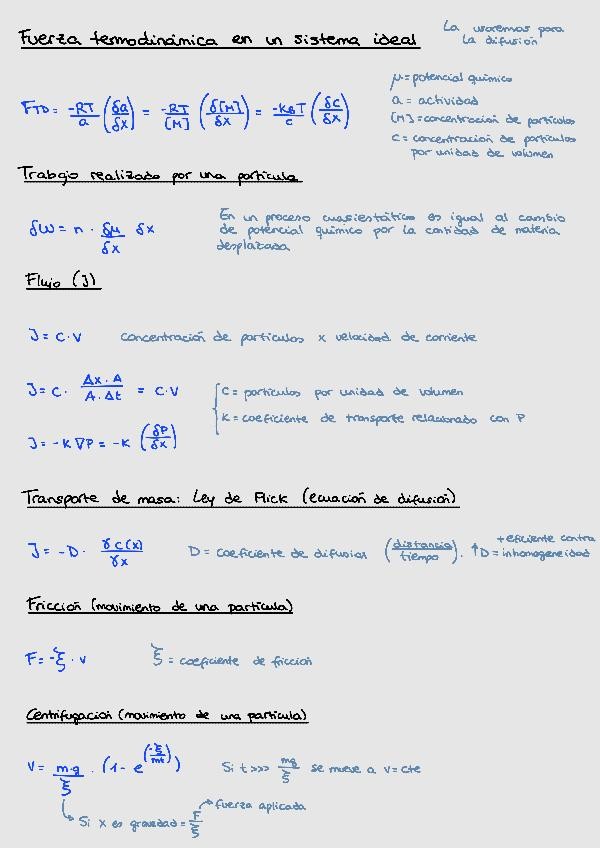 Fuerza termodinámica en un sistema ideal
La usaremos para
la difusión
F_TD = -RT/a (δa/δx) = -RT/[M] (δ[M]/δx) = -K_B T/c (δc/δx)
μ = potencial químico
a = actividad
[M] = concentración de partículas
c = concentración de partículas
por unidad de volumen
Trabajo realizado por una partícula
δW = n · δμ/δx δx
En un proceso cuasiestático es igual al cambio
de potencial químico por la cantidad de materia
desplazada
Flujo (J)
J = C · V concentración de partículas x velocidad de corriente
J = C · Δx · A / A · Δt = C · V
C = partículas por unidad de volumen
K = coeficiente de transporte relacionado con P
J = -K ∇P = -K (δP/δx)
Transporte de masa: Ley de Flick (ecuación de difusión)
J = -D · γc(x)/γx D = coeficiente de difusión (distancia/tiempo). ↑D = + eficiente contra inhomogeneidad
Fricción (movimiento de una partícula)
F = -ξ · v ξ = coeficiente de fricción
Centrifugación (movimiento de una partícula)
V = m·g/ξ · (1 - e^(-ξ/mt)) Si t >>> mg/ξ se mueve a v = cte
Si x es gravedad = F/ξ → fuerza aplicada